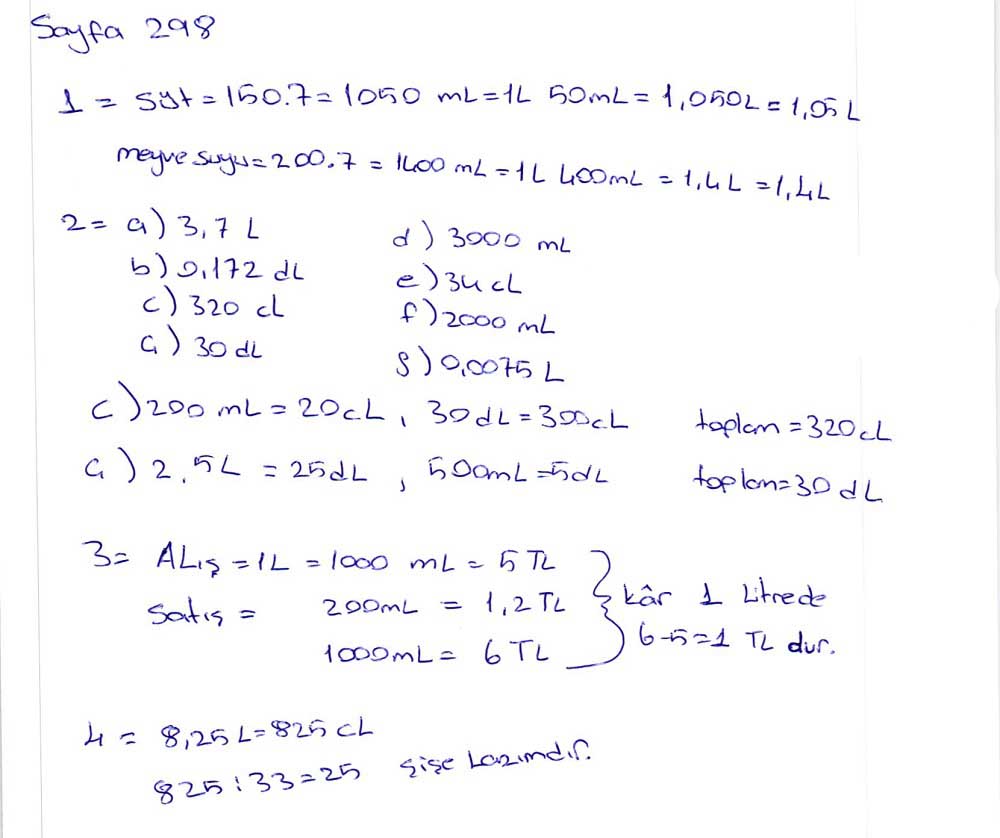 Sayfa 298
1 = süt = 150.7 = 1050 mL = 1L 50mL = 1,050L = 1,05 L
meyve suyu = 200.7 = 1400 mL = 1L 400mL = 1,4L = 1,4L
2 = a) 3,7 L
b) 0,172 dL
c) 320 cL
ç) 30 dL
d) 3000 mL
e) 34 cL
f) 2000 mL
g) 0,0075 L
c) 200 mL = 20cL, 30dL = 300cL toplam = 320cL
ç) 2,5L = 25dL, 500mL = 5dL toplam = 30 dL
3 = ALış = 1L = 1000 mL = 5 TL
Satış = 200mL = 1,2 TL
1000mL = 6 TL
kâr 1 Litrede
6-5=1 TL dur.
4 = 8,25L = 825 cL
825 : 33 = 25 şişe Lazımdır.